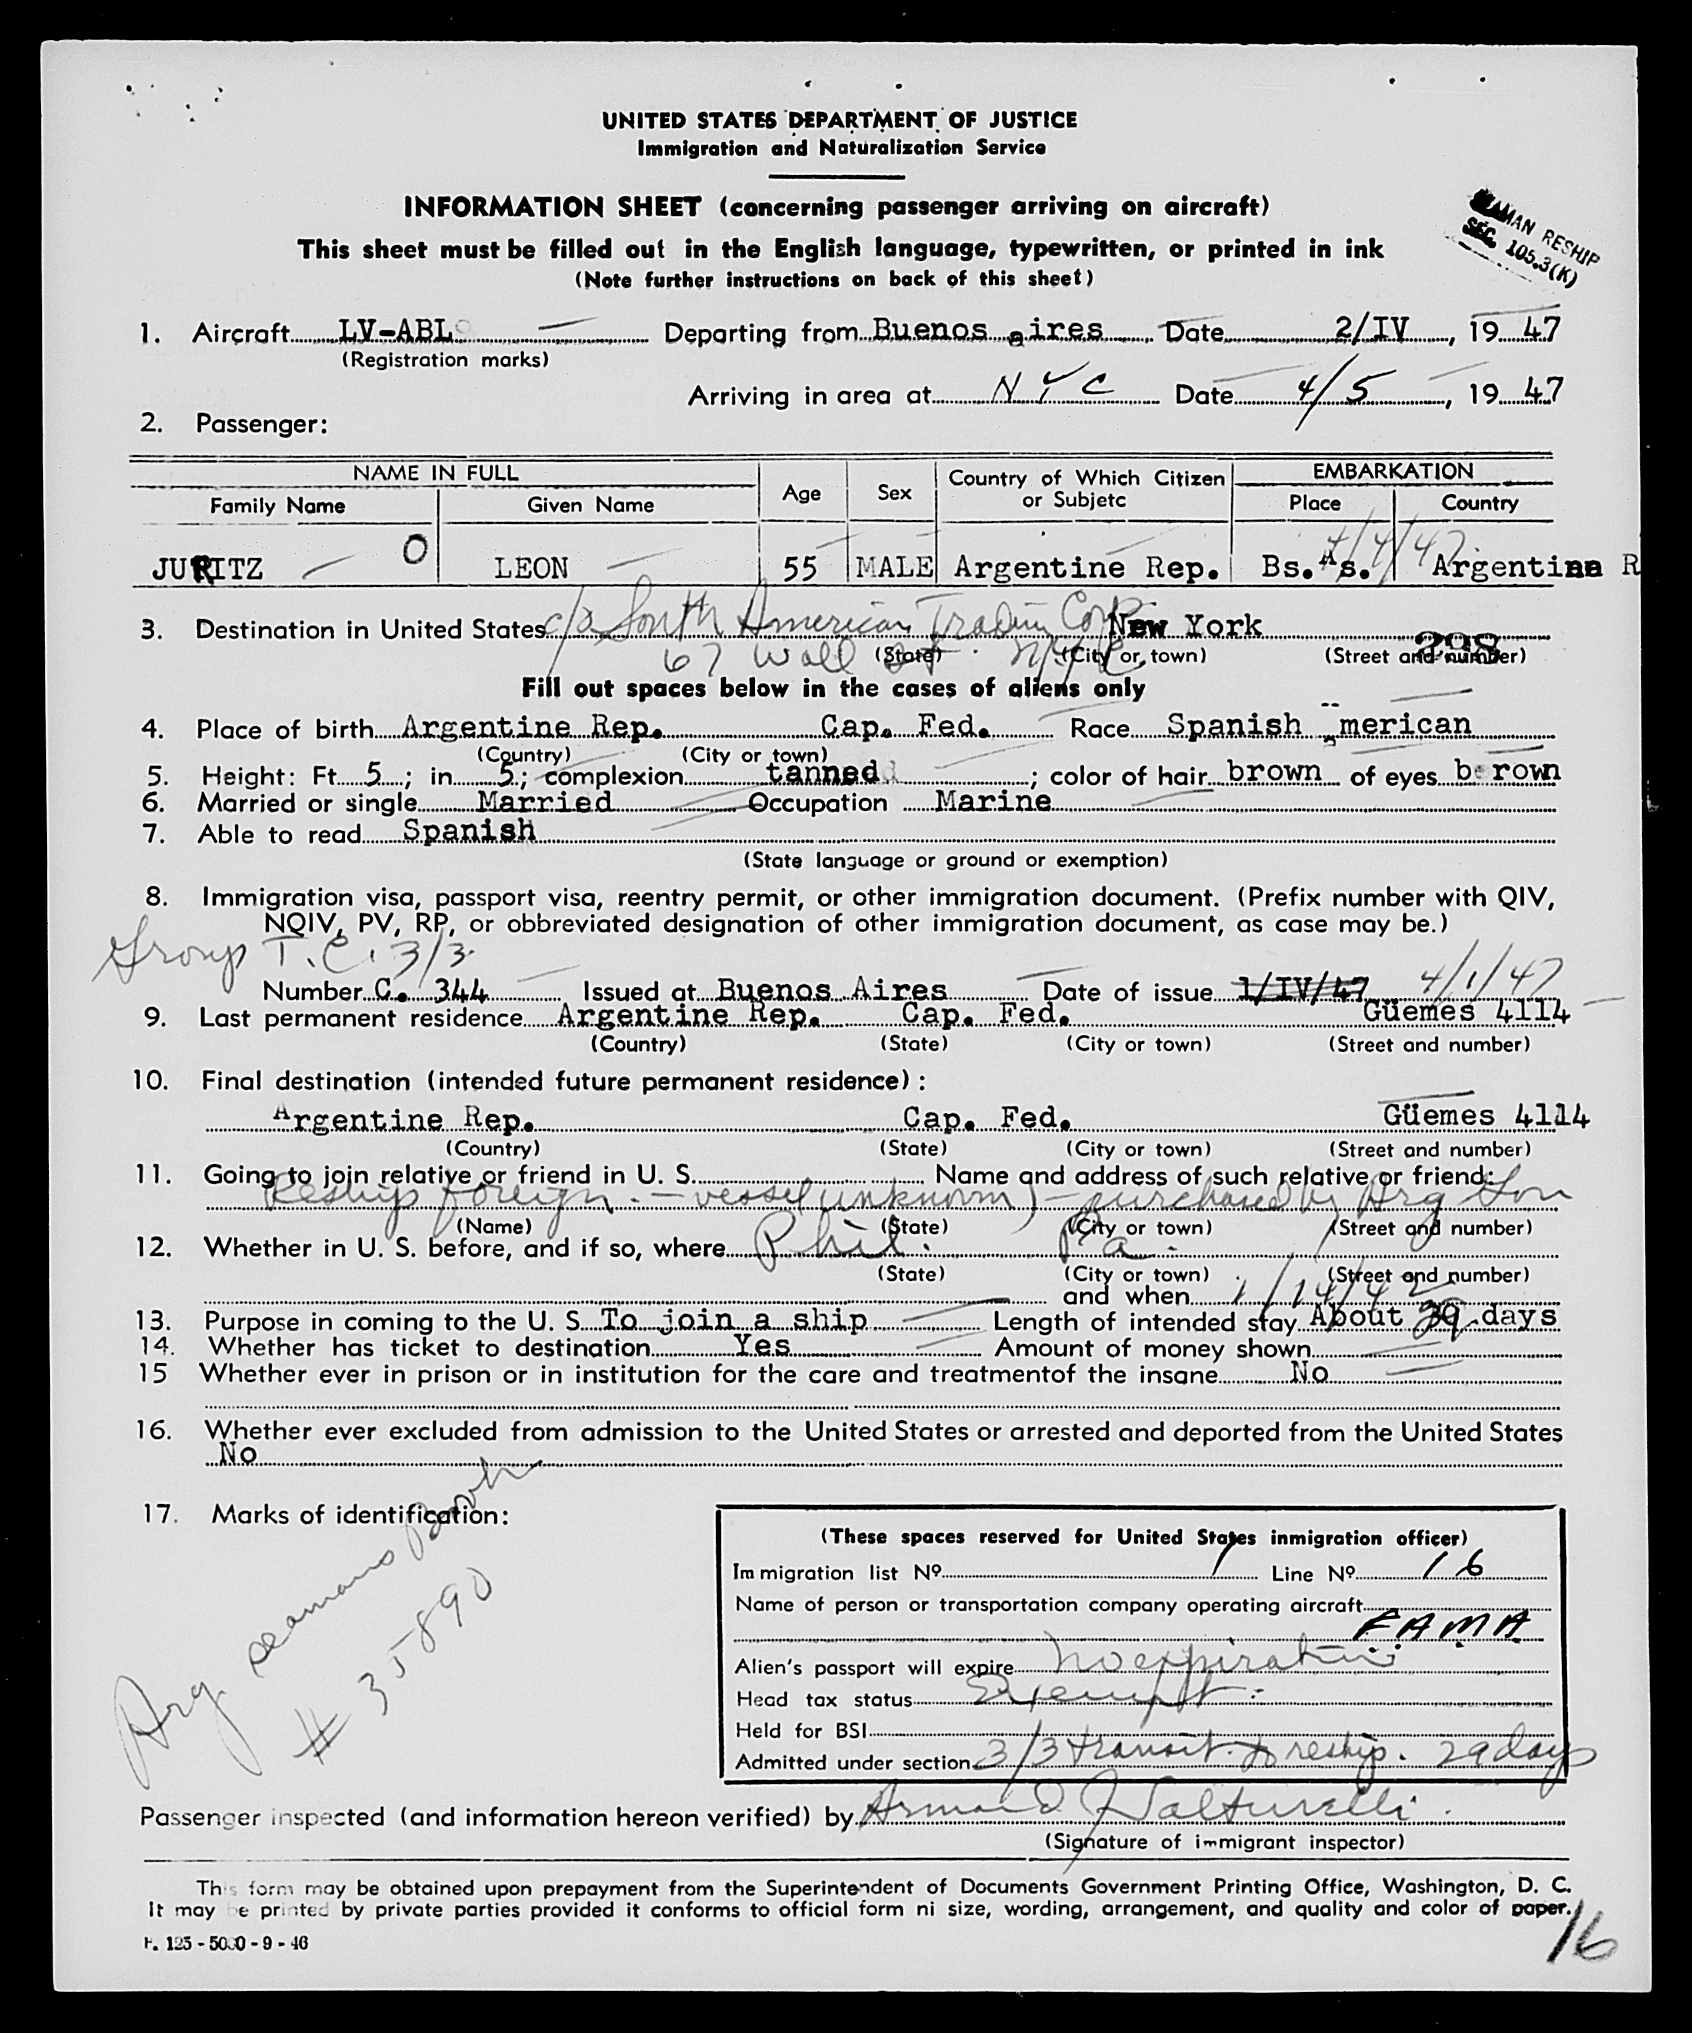 UNITED STATES DEPARTMENT OF JUSTICE
Immigration and Naturalization Service
INFORMATION SHEET (concerning passenger arriving on aircraft)
This sheet must be filled out in the English language, typewritten, or printed in ink
(Note further instructions on back of this sheet)
RESHIP
SEC. 105.3(K)
1. Aircraft LV-ABL Departing from Buenos aires Date 2/IV, 19 47
(Registration marks)
Arriving in area at NYC Date 4/5, 19 47
2. Passenger:
NAME IN FULL Age Sex Country of Which Citizen or Subjetc EMBARKATION
Family Name Given Name Place Country
4/4/47
JURITZ O LEON 55 MALE Argentine Rep. Bs. As. Argentina R
c/o South American Trading Corp.
3. Destination in United States New York 298
67 Wall St. NYC
(State) (City or, town) (Street and number)
Fill out spaces below in the cases of aliens only
4. Place of birth Argentine Rep. Cap. Fed. Race Spanish American
(Country) (City or town)
5. Height: Ft. 5; in. 5; complexion tanned; color of hair brown of eyes brown
6. Married or single Married Occupation Marine
7. Able to read Spanish
(State language or ground or exemption)
8. Immigration visa, passport visa, reentry permit, or other immigration document. (Prefix number with QIV,
NQIV, PV, RP, or obbreviated designation of other immigration document, as case may be.)
Group T.C. 3/3
Number C. 344 Issued at Buenos Aires Date of issue 1/IV/47 4/1/47
9. Last permanent residence Argentine Rep. Cap. Fed. Güemes 4114
(Country) (State) (City or town) (Street and number)
10. Final destination (intended future permanent residence):
Argentine Rep. Cap. Fed. Güemes 4114
(Country) (State) (City or town) (Street and number)
11. Going to join relative or friend in U. S. Name and address of such relative or friend:
Reship foreign - vessel (unknown) - purchased by Arg Gov
(Name) (State) (City or town) (Street and number)
12. Whether in U. S. before, and if so, where Phil. Pa.
(State) (City or town) (Street and number)
and when 1/14/42
13. Purpose in coming to the U. S. To join a ship Length of intended stay About days
14. Whether has ticket to destination Yes Amount of money shown
15 Whether ever in prison or in institution for the care and treatmentof the insane No
16. Whether ever excluded from admission to the United States or arrested and deported from the United States
No
17. Marks of identification:
Arg seamans Book
# 35890
(These spaces reserved for United States inmigration officer)
Immigration list Nº 1 Line Nº 16
Name of person or transportation company operating aircraft
F.A.M.A
Alien's passport will expire no expiration
Head tax status Exempt
Held for BSI
Admitted under section 3/3 transit to reship. 29 days
Passenger inspected (and information hereon verified) by Armand J
(Signature of immigrant inspector)
This form may be obtained upon prepayment from the Superintendent of Documents Government Printing Office, Washington, D. C.
It may be printed by private parties provided it conforms to official form ni size, wording, arrangement, and quality and color of paper.
F. 125 - 5000 - 9 - 46
16